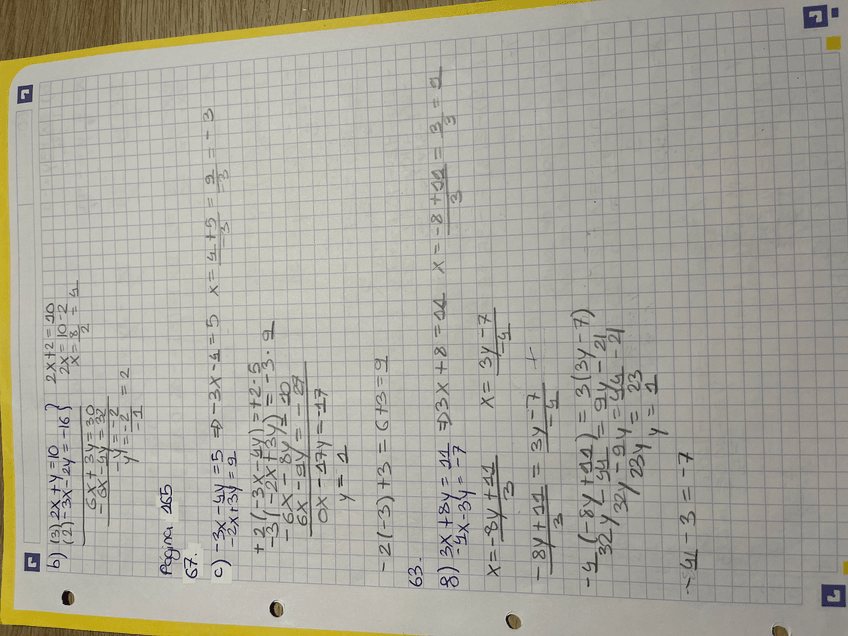 b) (3) 2x + y = 10 }
(2) -3x - 2y = -16 }
6x + 3y = 30
-6x - 4y = 32
-y = -2
y = -2/-1 = 2
2x + 2 = 10
2x = 10 - 2
x = 8/2 = 4
Página 165
67.
c) -3x - 4y = 5 ⇒ -3x - 4 = 5 x = 4+5/-3 = 9/-3 = -3
-2x + 3y = 9
+2(-3x - 4y) = +2·5
-3(-2x + 3y) = -3·9
-6x - 8y = 10
6x - 9y = -27
0x - 17y = -17
y = 1
-2(-3) + 3 = 6 + 3 = 9
63.
g) 3x + 8y = 11 ⇒ 3x + 8 = 11 x = -8+11/3 = 3/3 = 1
-4x - 3y = -7
x = -8y+11/3 x = 3y-7/4
-8y+11/3 = 3y-7/-4
-4(-8y + 11) = 3(3y - 7)
32y - 44 = 9y - 21
32y - 9y = 44 - 21
23y = 23
y = 1
-4 - 3 = -7